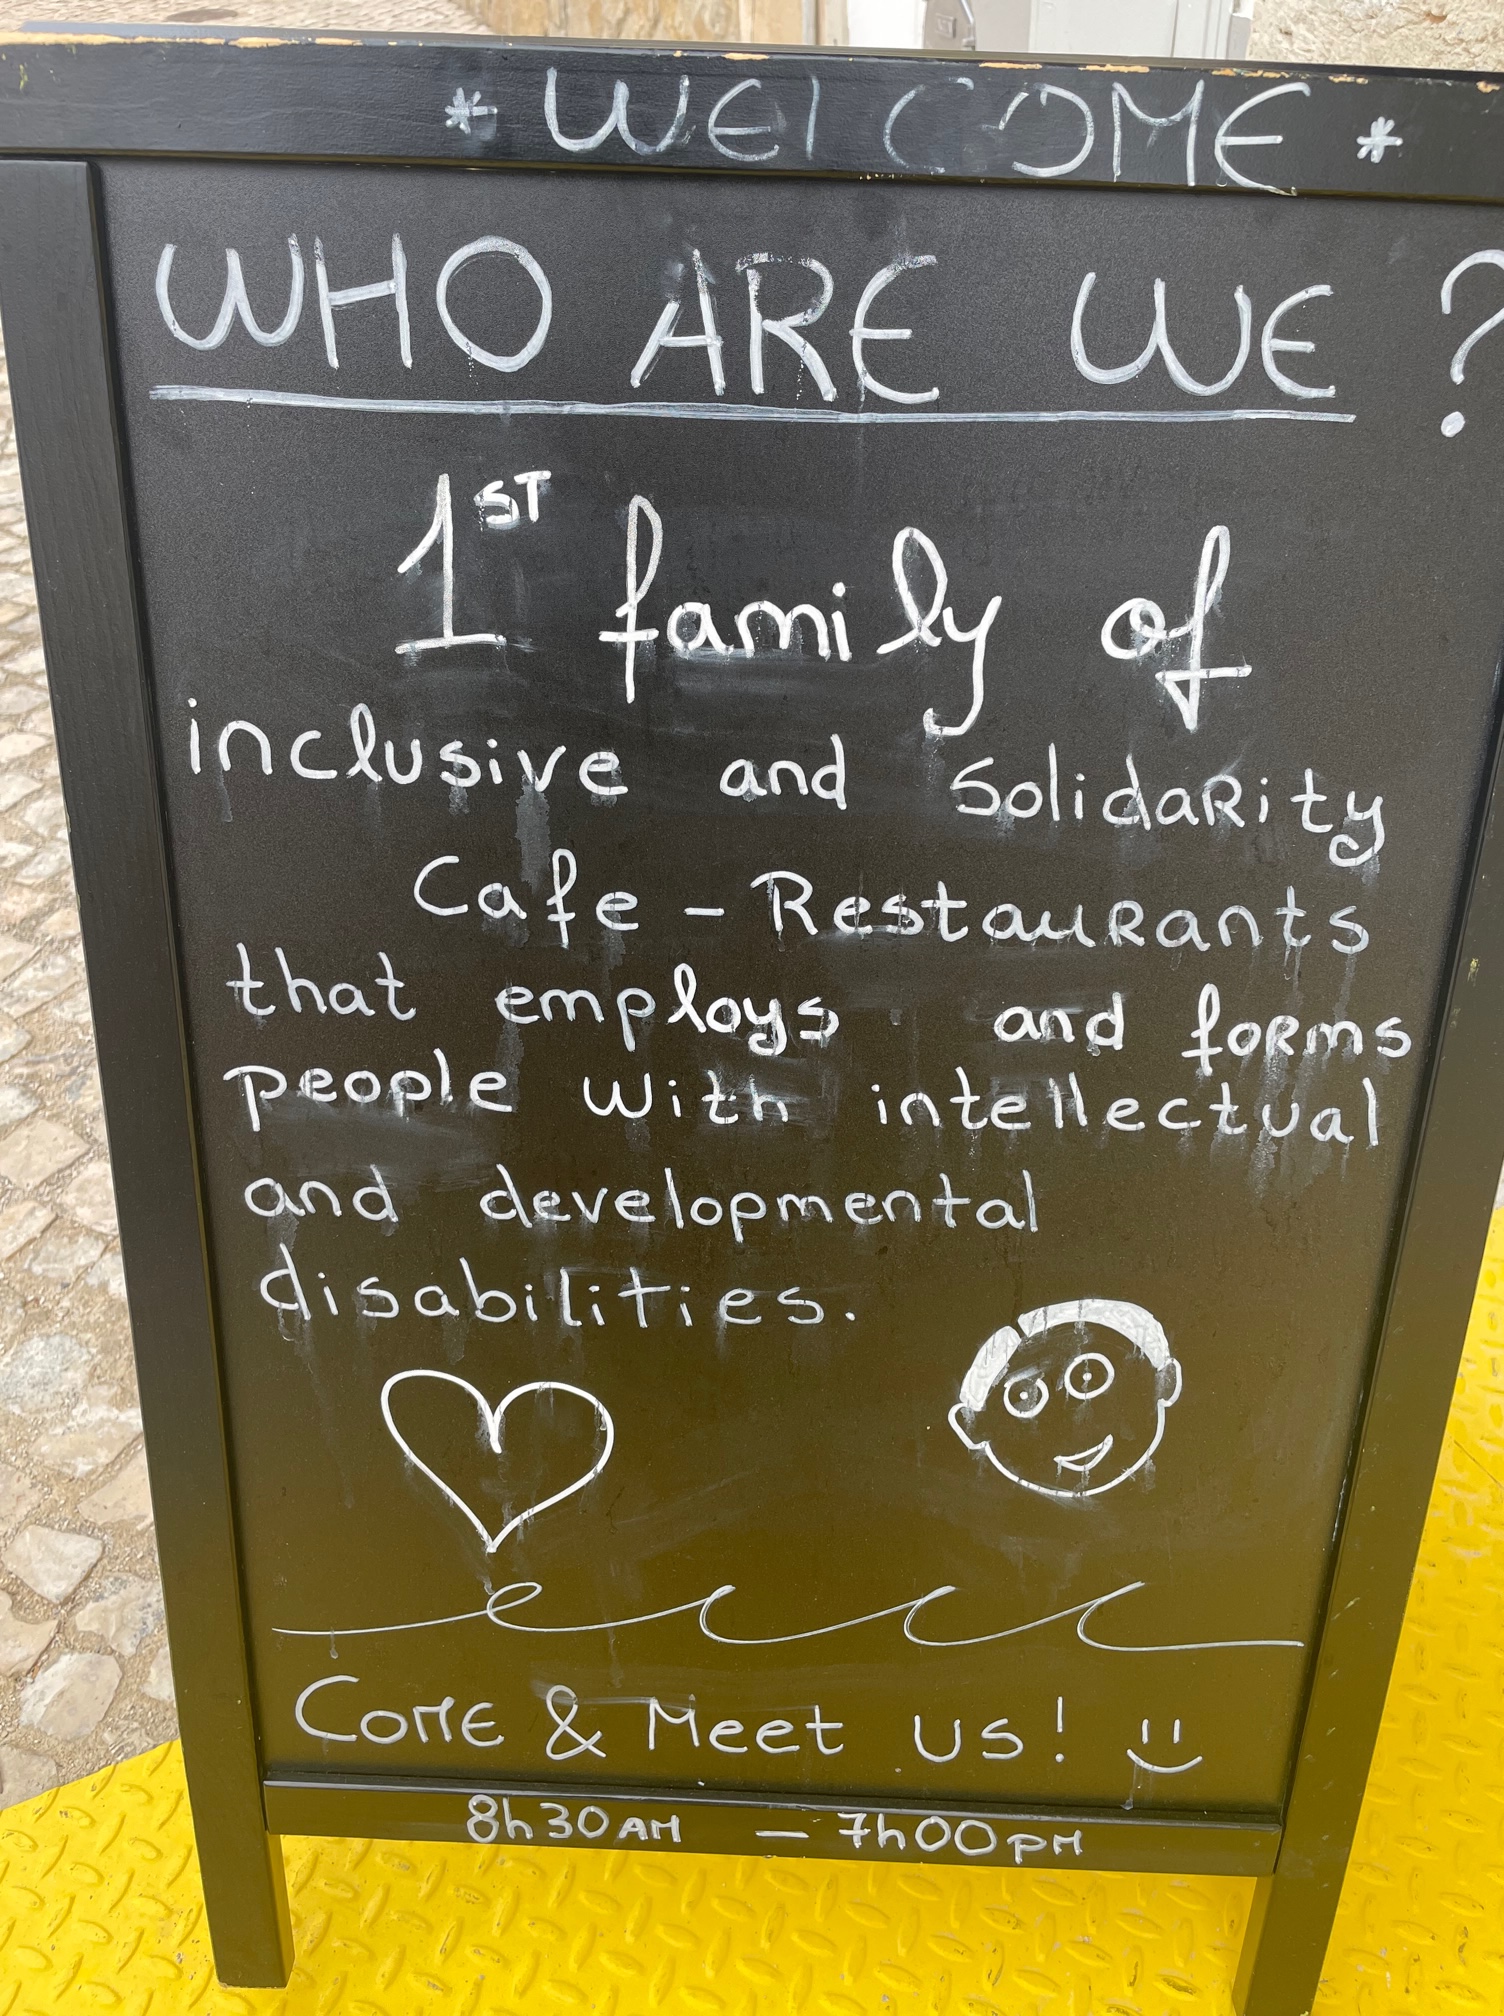 * WELCOME *
WHO ARE WE ?
1ST family of
inclusive and Solidarity
Cafe - Restaurants
that employs and forms
people with intellectual
and developmental
disabilities.
Come & Meet us! :)
8h30AM — 7h00PM